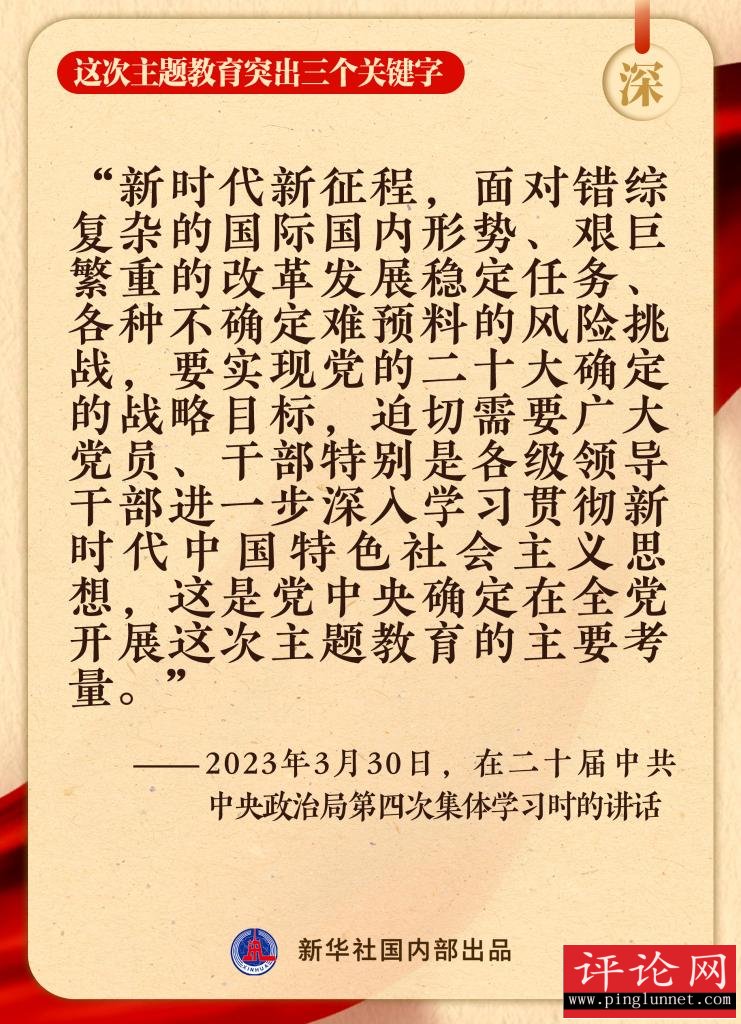 这次主题教育突出三个关键字
深
“新时代新征程，面对错综
复杂的国际国内形势、艰巨
繁重的改革发展稳定任务、
各种不确定难预料的风险挑
战，要实现党的二十大确定
的战略目标，迫切需要广大
党员、干部特别是各级领导
干部进一步深入学习贯彻新
时代中国特色社会主义思
想，这是党中央确定在全党
开展这次主题教育的主要考
量。”
——2023年3月30日，在二十届中共
中央政治局第四次集体学习时的讲话
XINHUA
新华社国内部出品
评论网
www.pinglunnet.com